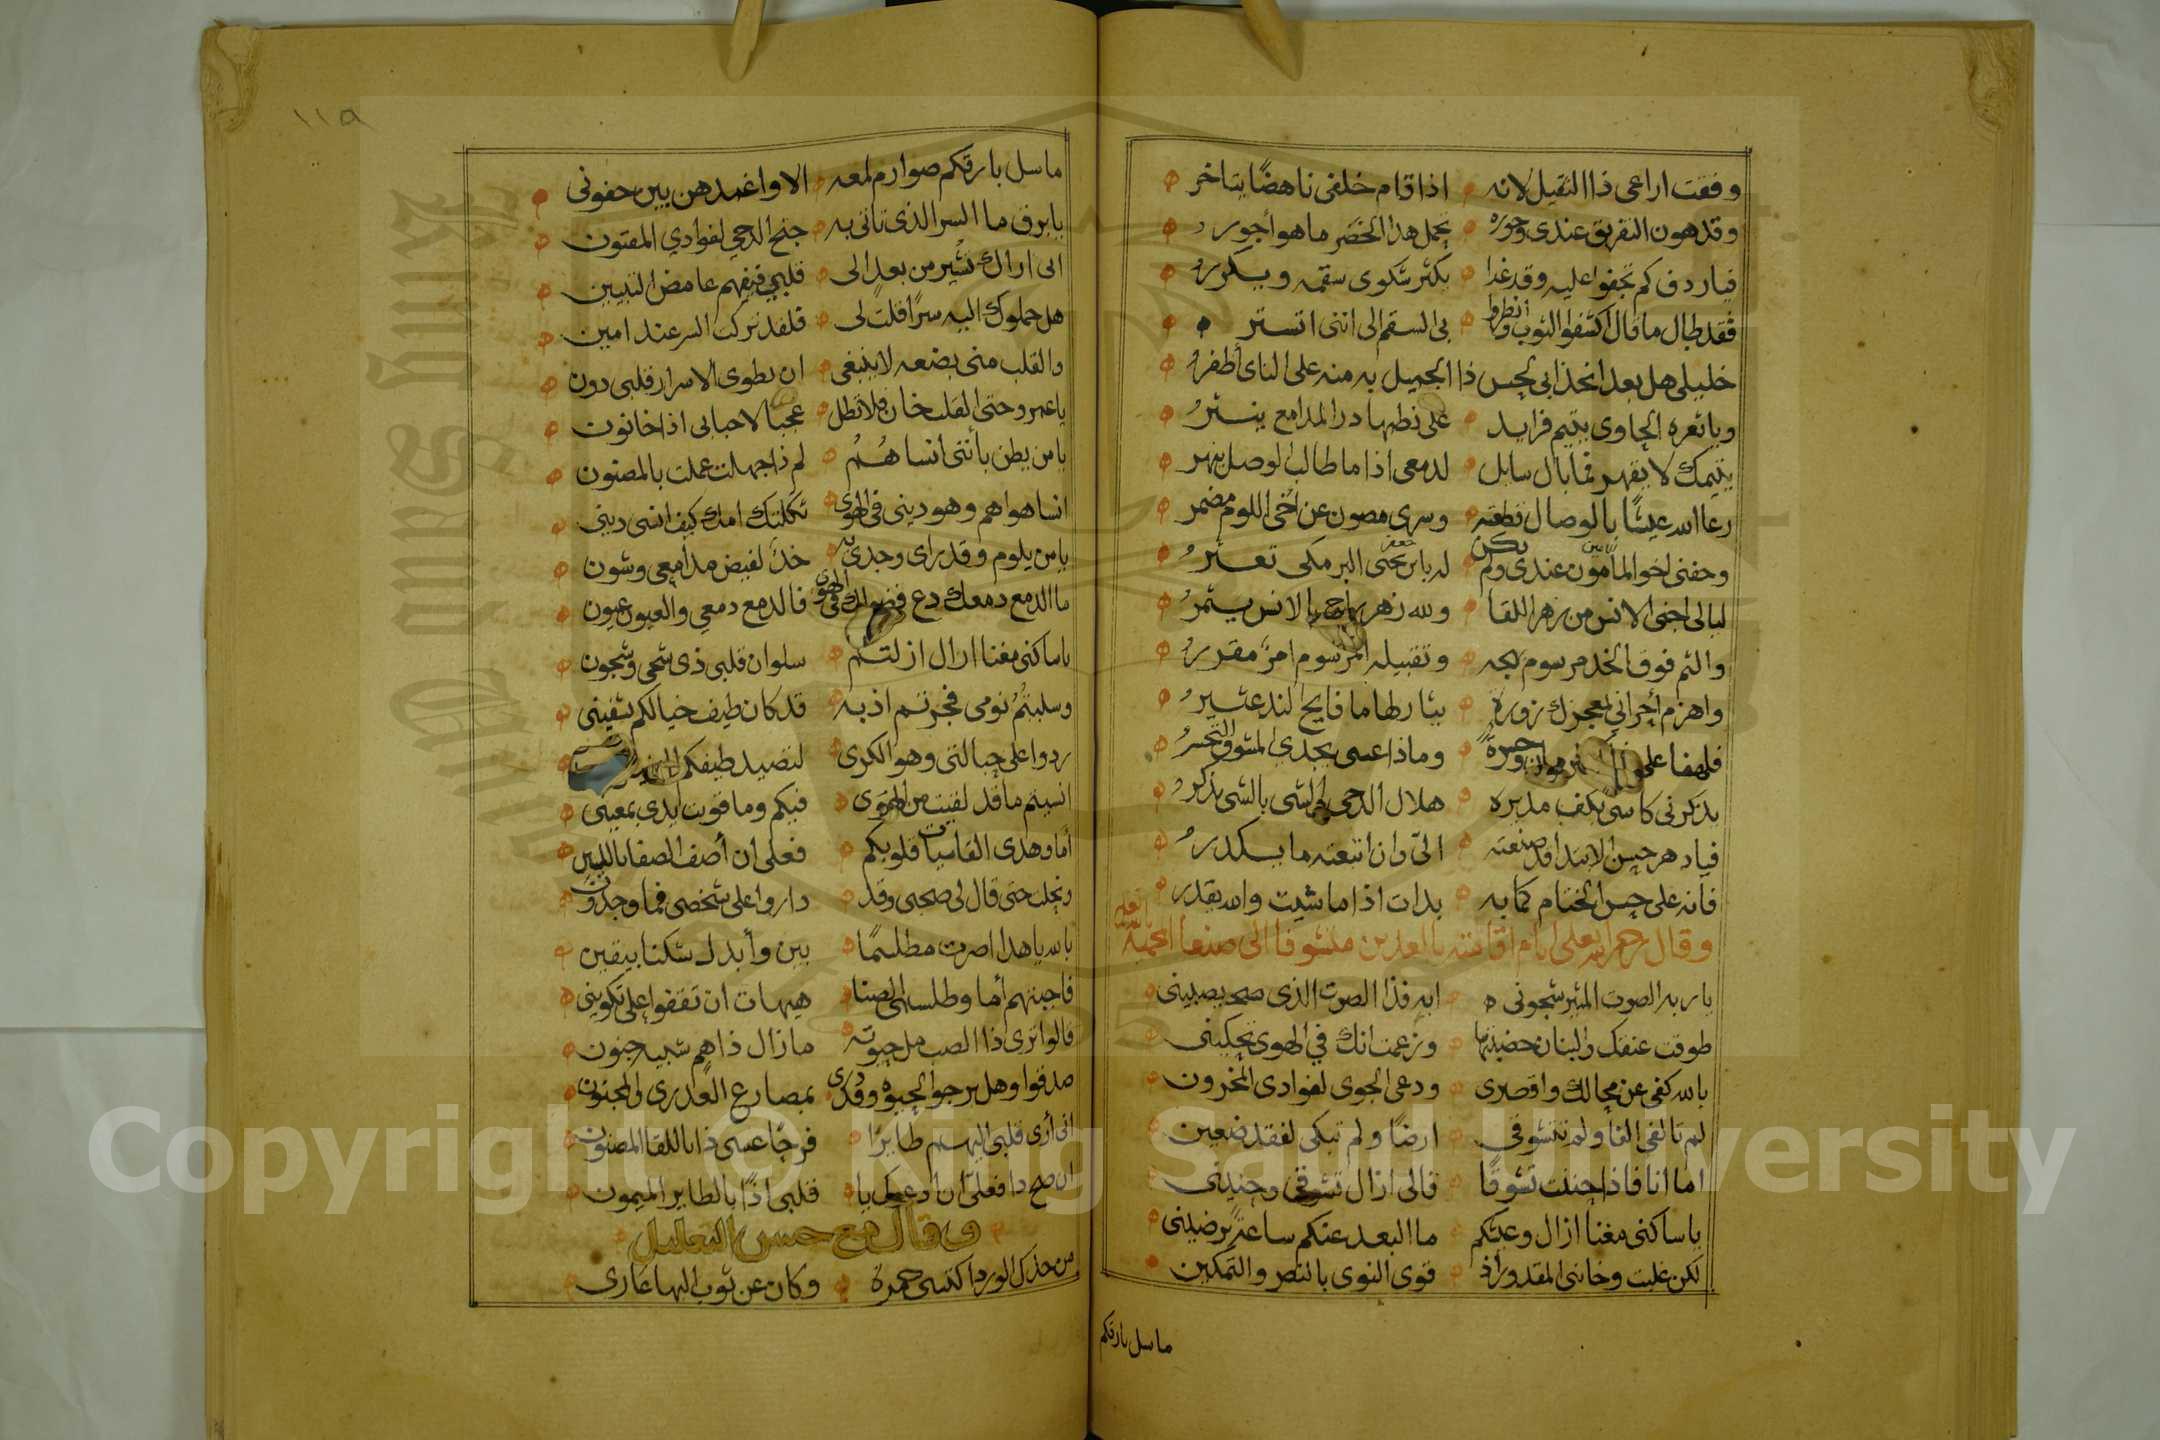 وفقت اراعى ذا الثقيل لانه اذا قام خلفى ناهضًا يتاخر
وقد هون التفريق عندى وجوره تحمل هذا الخصر ما هو أجور
فيا ردف كم تجفوا عليه وقد غدا بكثر شكوى سقمه ويكرر
فقد طال ما قال اكشفوا الثوب وانظروا بى السقم الى اننى اتستر
خليلى هل بعد انخذابى لحسن ذا الجميل به منه على الناى أظفر
ويا ثغره الحاوى يتيم فرايد على نظمها در المدامع ينثر
يتيمك لا يقهر فما بال سايل لدمعى اذا ما طالب الوصل ينهر
رعا الله عيشًا بالوصال قطعته وسرى مصون عن أخى اللوم مضمر
وجفنى اخو المأمون عندى ولم يكن له بابن يحيى البرمكى تعثر
ليالى اجنى الانس من زهر اللقا ولله زهر بالانس يثمر
والثم فوق الخد مرسوم لحمه وتقبيله المرسوم امرٌ مقرر
واهزم أحزانى بمعجزك زورة بثارطا ما فايح الند عثير
فلهفا على وحيرة وماذا عسى يجدى المشوق التحسر
يذكرنى كاسى بكف مديره هلال الدجى والشى بالشى يذكر
فيا دهر حسن الابتدا قد صنعته الىّ وان اتبعته ما يكدر
فانه على حسن الختام كما به بدات اذا ما شيت والله يقدر
وقال رحمه الله تعلى ايام اقامته بالعدين متشوقا الى صنعا المحمية
يا ربه الصوت المثير شجونى ايه فذا الصوت الذى يصبينى
طوقت عنقك والبنان خضبتها وزعمت انك فى الهوى تحكينى
بالله كفى عن محالك واقصرى ودعى الجوى لفوادى المخرون
لم تالفى الفا ولم تتشوقى ارضًا ولم تبكى لفقد ضعين
اما انا فاذا حننت تشوقًا فالى ازال تشوقى وحنينى
يا ساكنى مغنا ازال وعيشكم ما البعد عنكم ساعةً يرضينى
لكن غلبت وخاننى المقدور اذ قوى النوى بالنصر والتمكين
ما سل بارقكم
١١٩
ما سل بارقكم صوارم لمعه الا واغمدهن بين جفونى
يا برق ما السر الذى تاتى به جنح الدجى لفوادي المفتون
انى اراك تشير من بعد الى قلبى فيفهم غامض التبيين
هل حملوك اليه سرًا قلت لى فلقد تركت السر عند امين
والقلب منى بضعه لا ينبغى ان يطوى الاسرار قلبى دون
يا عمرو حتى القلب خان فلا تطل عجبا لاحبابى اذا خانون
يا من يظن بأننى انساهُمُ لم ذا جهلت عملت بالمضنون
انسا هواهم وهو دينى فى الهوى ثكلتك امك كيف انسى دينى
يا من يلوم وقد راى وجدى به خدّ لفيض مدامعى وشون
ما الدمع دمعك دع فى الهوى فالدمع دمعي والعيون عيون
يا ساكنى مغنا ازال ازلتم سلوان قلبى ذى شجى وشجون
وسلبتُمُ نومى فجرتم اذ به قد كان طيف خيالكم يشفينى
ردوا على حبالتى وهو الكرى لتصيد طيفكم
انسيتم ما قد لقيت من الهوى فيكم وما قويت يدى بمعينى
أما وهدى القاسيات قلوبكم فعلى ان أصف الصفا باللين
ونحلت حتى قال لى صحبى وقد داروا على شخصى فما وجدون
بالله يا هذا اصرت مطلسمًا بين وأبدلـ شكنا بيقين
فاجبتهم أما وطلسمى الضنا هيهات ان تقفوا على تكوينى
قالوا ترى ذا الصب مل حيوته ما زال ذا هم شبيه جنون
صدقوا وهل يرجوا الحيوة وقد درى بمصارع العذرى والمجنون
انى أرى قلبى اليهم طايرًا فرحًا عسى ذا باللقا المضنون
ان صح ذا فعلى ان ادعوك يا قلبى اذًا بالطاير الميمون
وقال مع حسن التعليل
من خدك الورد اكتسى حمرة وكان عن ثوب البها عارى